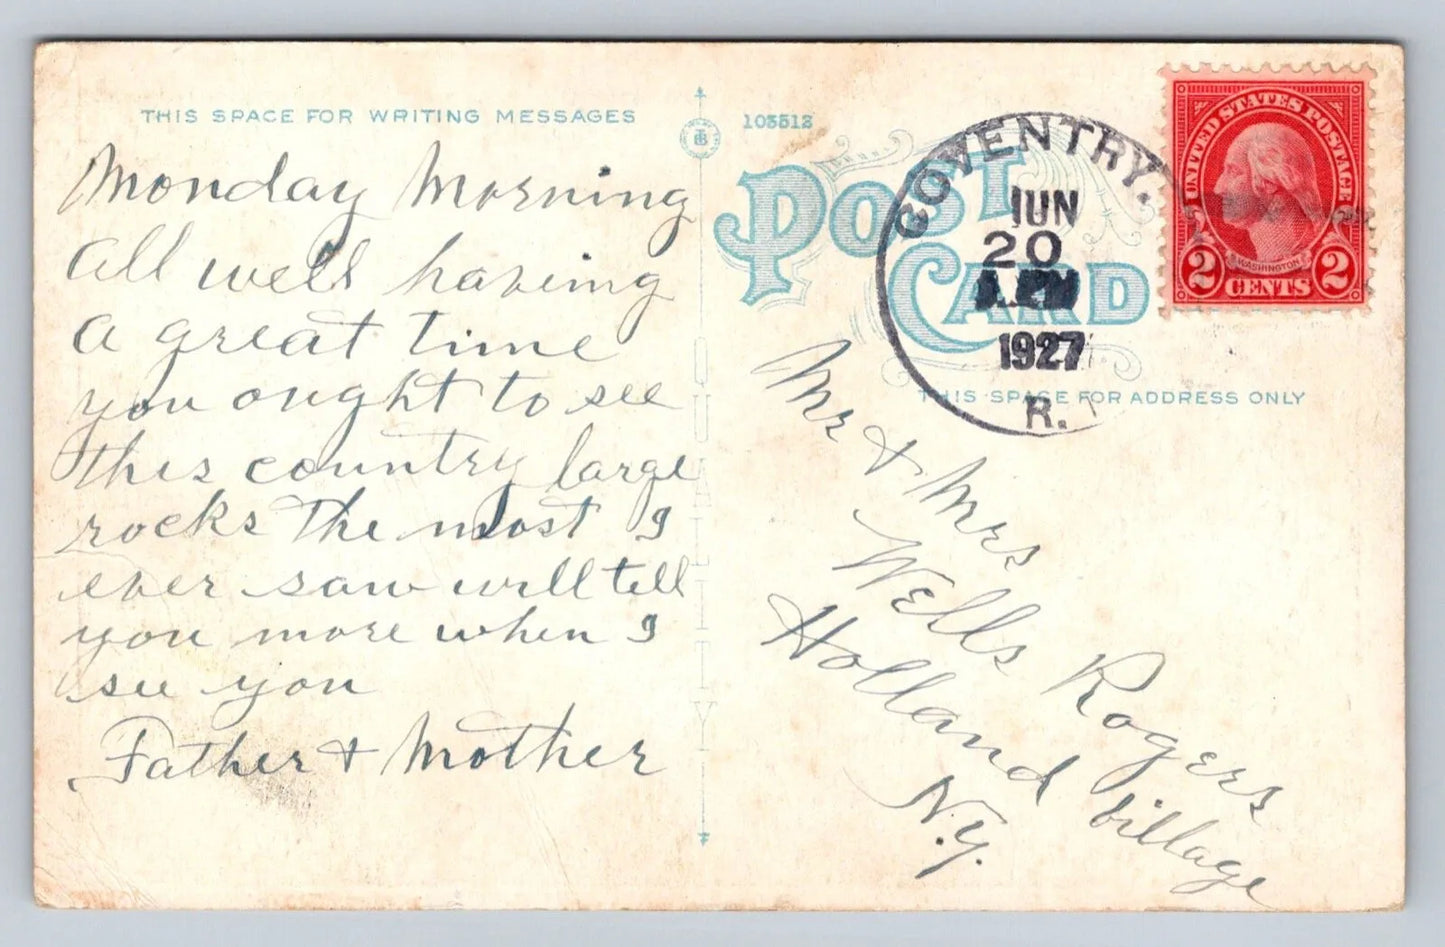 THIS SPACE FOR WRITING MESSAGES
Monday Morning
all well having
a great time
you ought to see
this country large
rocks the most I
ever saw will tell
you more when I
see you
Father & Mother
105512
POST
CARD
COVENTRY.
JUN
20
1927
R.
UNITED STATES POSTAGE
WASHINGTON
2 CENTS 2
THIS SPACE FOR ADDRESS ONLY
Mr & Mrs
Wells Rogers
Holland billage
N.Y.